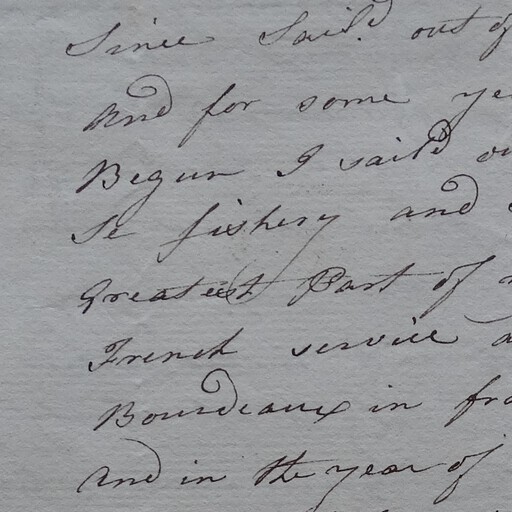 Since Sail'd out of
And for some
Begun I sail'd
Se fishery and
Greatest Part of
French service
Bourdeaux in
And in the year of